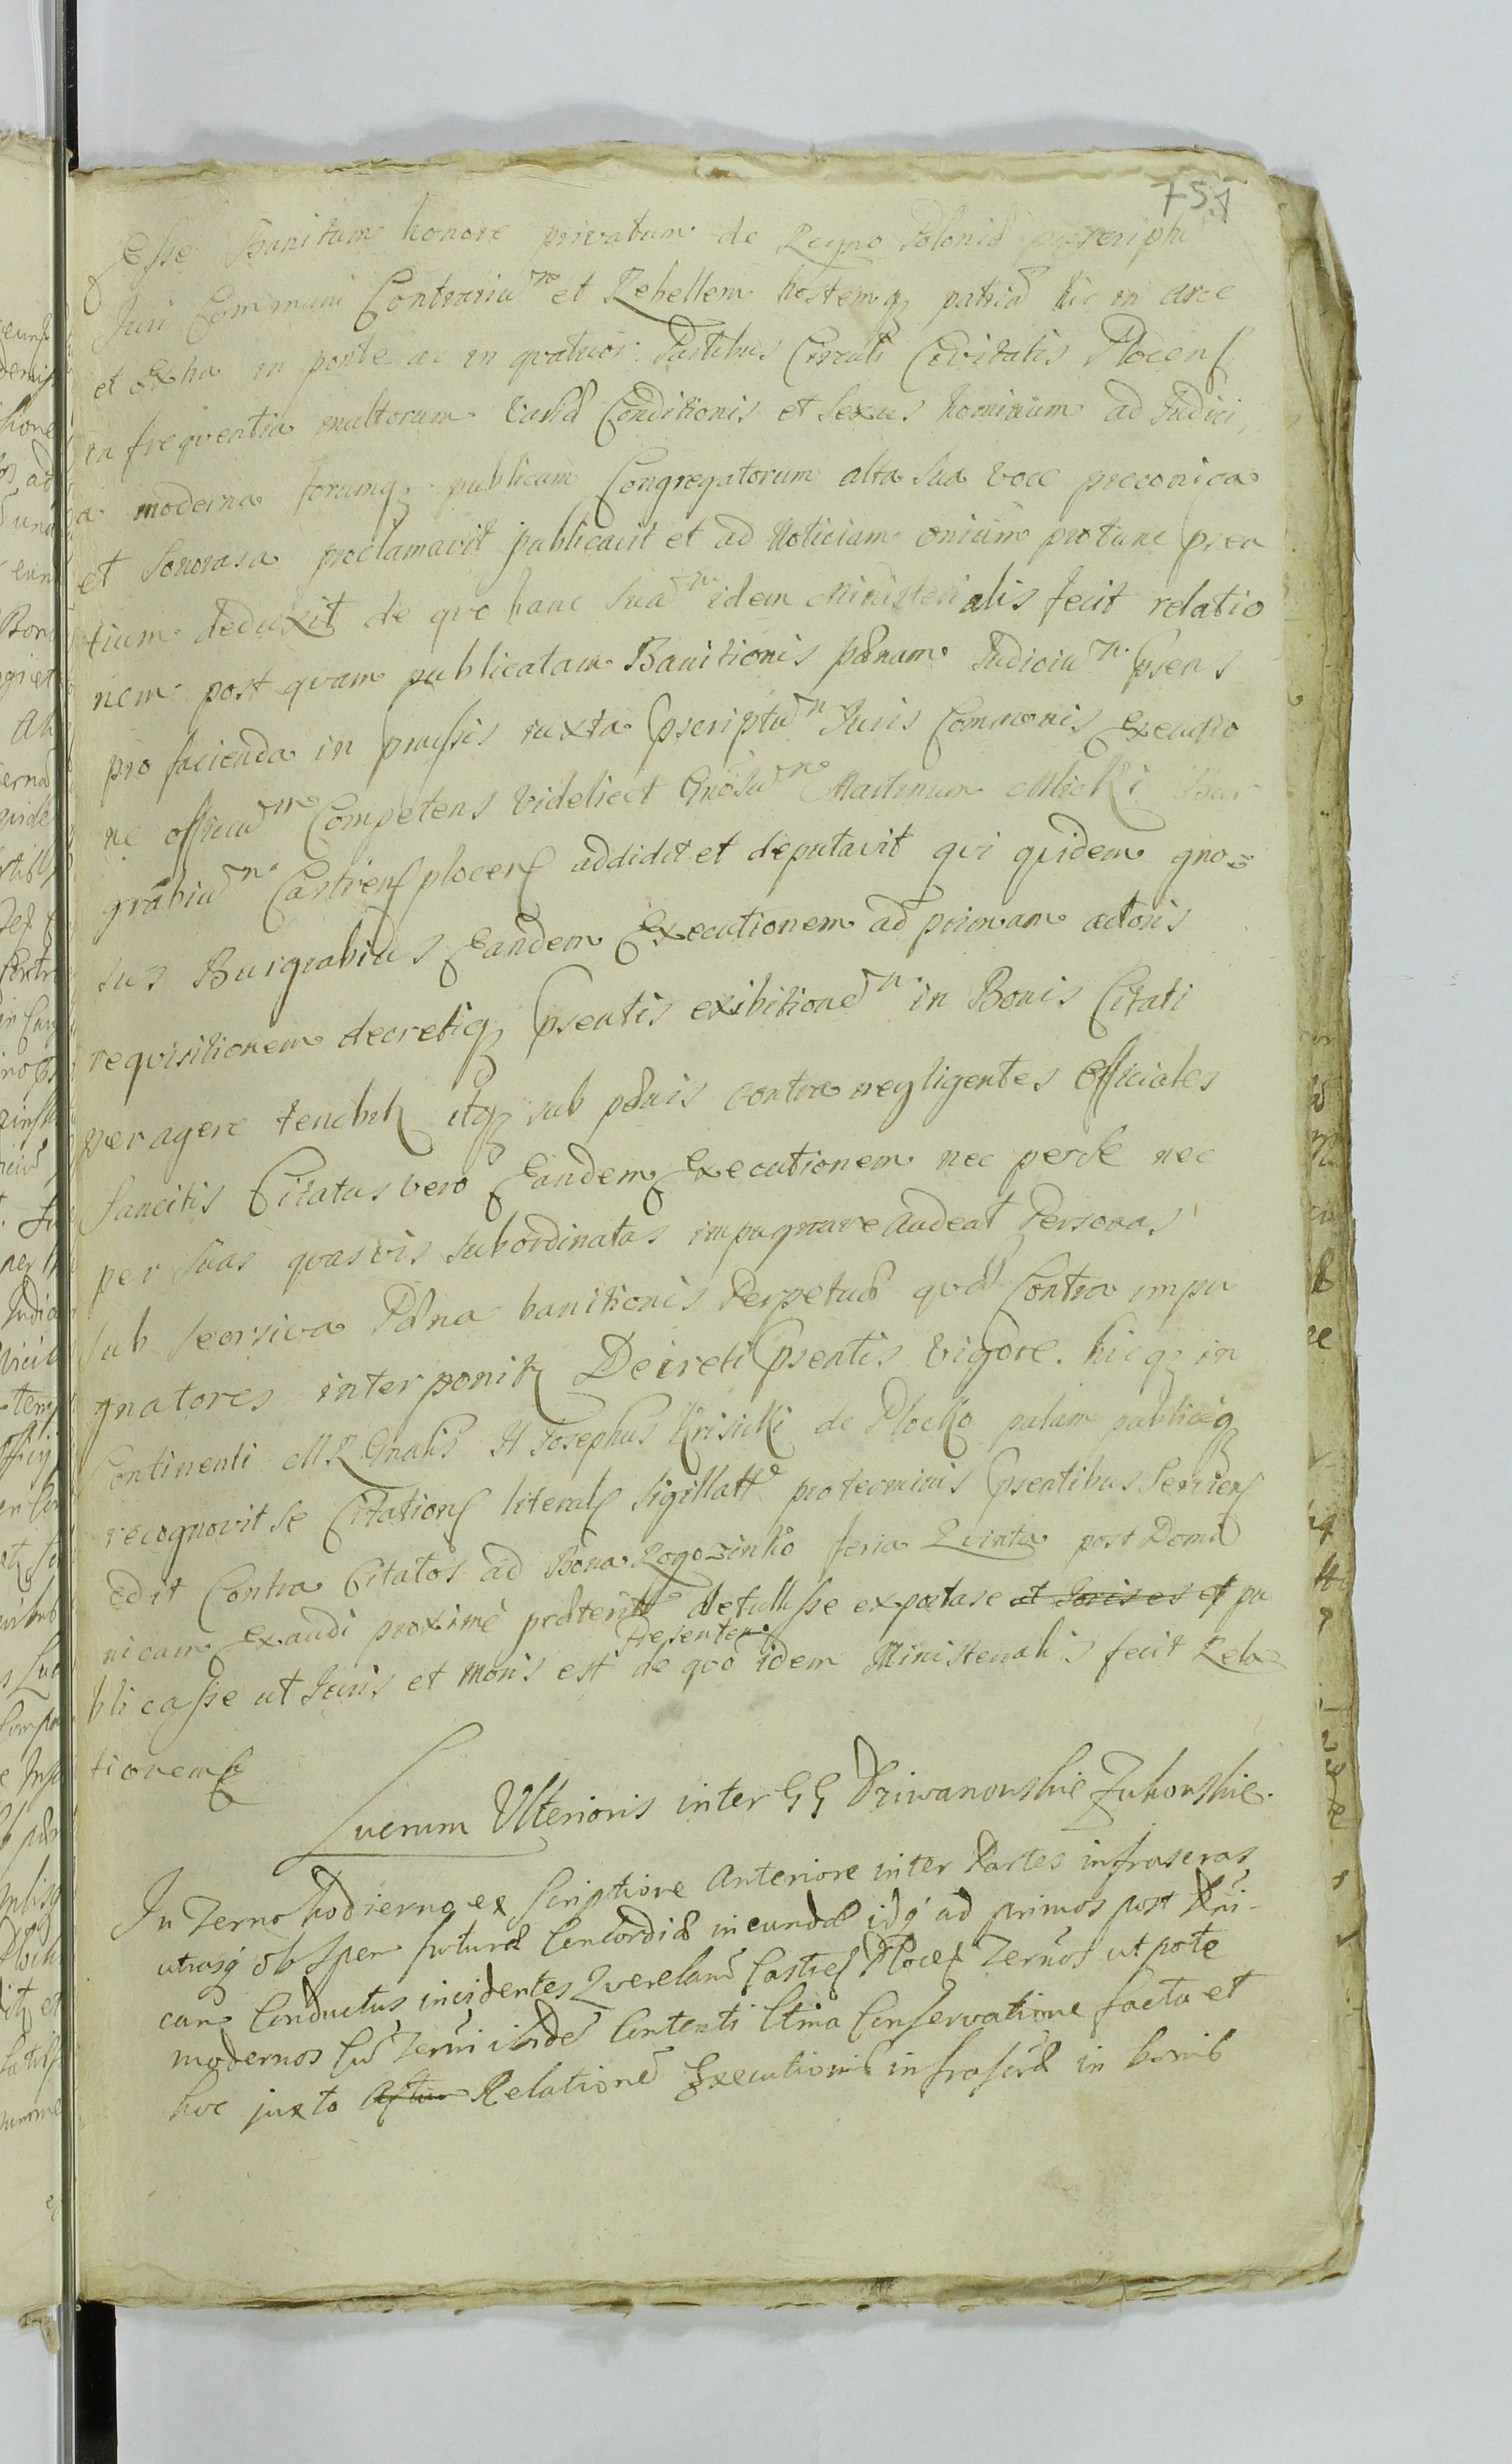 751
Esse Banitum honore privatum de Regno Poloniæ proscriptu
Juri Communi Contrariu͠m et Rebellem hostemq patriæ hic in arce
et extra in ponte ac in qvatuor Partibus Circuli Civitatis Plocens
in freqventia multorum variæ Conditionis et Sexus hominum ad Judici,
a moderna forumq publicum Congregatorum alta Sua voce preconica
et Sonorasa proclamavit publicavit et ad Noticiam oniūm protunc prea
tium deduxit de qvo hanc Sua͠m idem Ministerialis fecit relatio
nem post qvam publicatam Banitionis pænam Judiciu͠m psens
pro facienda in pmissis iuxta pscriptu͠m Juris Communis Executio
ne officiu͠m Competens videlicet Gnōsu͠m Martinum Milicki Bur
grabiu͠m Castrens plocens addidit et deputavit qvi qvidem gno-
sus Burgrabius Eandem Executionem ad primam actoris
reqvisitionem decretiq psentis exibitione͠m in Bonis Citati
peragere tenebit idq sub pænis contra negligentes Officiales
Sancitis Citatus vero Eandem Executionem nec perse nec
per Suas qvasvis Subordinatas impugnare Audeat Personas
Sub Seorsiva Pæna banitionis Perpetuæ qvæ Contra impu
gnatores interponit Decreti psentis vigore. hicq in
Continenti M R Gnalis H Josephus Krisicki de Plocko palam publiceq
recognovit Se Citations literals Sigillatt pro terminis psentibus Serviens
edit Contra Citatos ad Bona Rogozinko feria Qvinta post Domi
nicam Exaudi proximè præterit detullisse expotase at Joris es et pu
Presenter
blicasse ut Juris et Moris est de qvo idem Ministerialis fecit Rela
tionem
Lucrum Ulterioris inter GG Dziwanowskie Zukowskie.
In Terno hodierno ex Scriptione Anteriore inter Partes infrascras
utrasq ob Spem futuræ Concordiæ ineundæ idq ad primos post Dni-
cam Conductus incidentes Qverelarū Castres Ploces Ternos ut pote
modernos Terni ibide Contenti Ctma Conservatione facta et
hoc juxto Relatione Executionis infrascræ in bonis